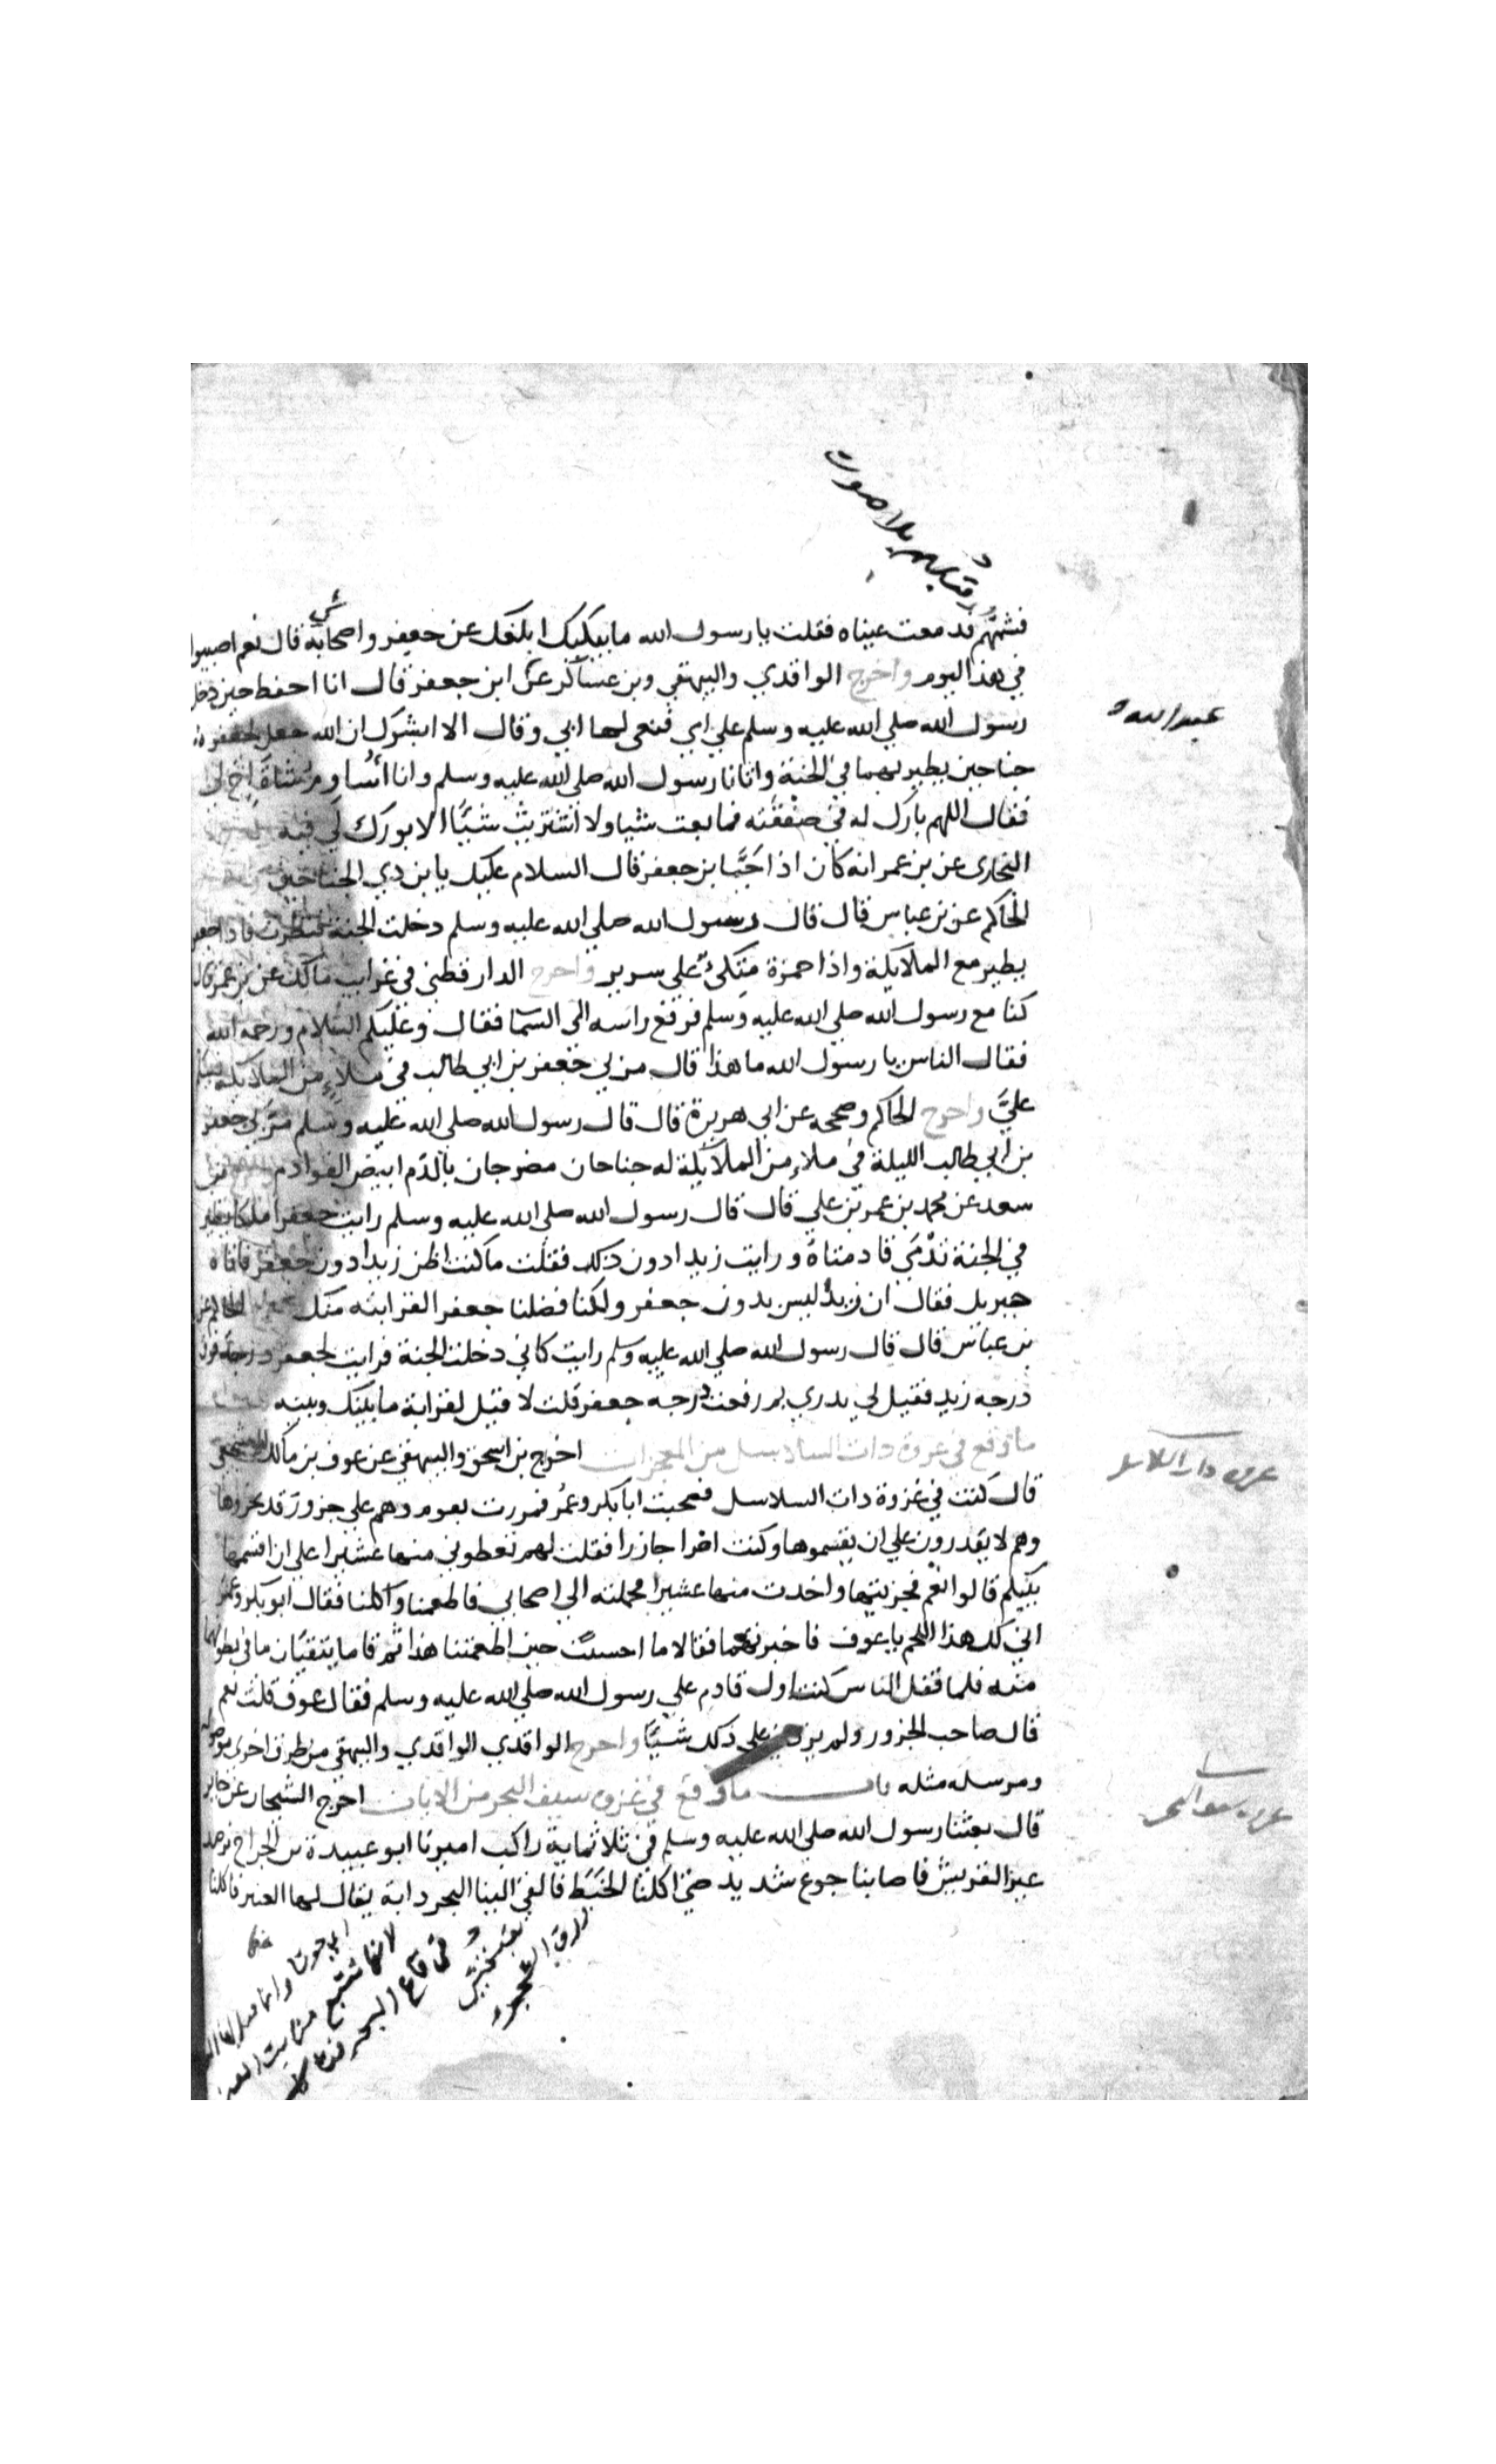 وقبلهم بلا صوت
فشمهم فدمعت عيناه فقلت يا رسول الله ما يبكيك ابلغك عن جعفر واصحابه شي قال نعم اصيبوا
في هذا اليوم واخرج الواقدي والبيهقي وبن عساكر عن ابن جعفر قال انا احفظ حين دخل
عبد الله
رسول الله صلي الله عليه وسلم علي امي فنعي لها ابي وقال الا ابشرك ان الله جعل لجعفر
جناحين يطير بهما في الجنة واتانا رسول الله صلي الله عليه وسلم وانا اساوم بشاة اخ لي
فقال اللهم بارك له في صفقته فما بعت شيا ولا اشتريت شيئا الا بورك لي فيه
البخاري عن بن عمر انه كان اذا حيا بن جعفر قال السلام عليك يا بن ذي الجناحين
الحاكم عن بن عباس قال قال رسول الله صلي الله عليه وسلم دخلت الجنة فنظرت فاذا جعفر
يطير مع الملايكة واذا حمزة متكئ علي سرير واخرج الدارقطني في غرايب مالك عن بن عمر قال
كنا مع رسول الله صلي الله عليه وسلم فرفع راسه الي السما فقال وعليكم السلام ورحمة الله
فقال الناس يا رسول الله ما هذا قال مر بي جعفر بن ابي طالب في ملاء من الملايكة فسلم
علي واخرج الحاكم وصححه عن ابي هريرة قال قال رسول الله صلي الله عليه وسلم مر بي جعفر
بن ابي طالب الليلة في ملاء من الملايكة له جناحان مضرجان بالدم ابيض القوادم واخرج بن
سعد عن محمد بن عمر بن علي قال قال رسول الله صلي الله عليه وسلم رايت جعفرا ملكا يطير
في الجنة تدمي قادمتاه ورايت زيدا دون ذلك فقلت ما كنت اظن زيدا دون جعفر فاتاه
جبريل فقال ان زيدا ليس بدون جعفر ولكنا فضلنا جعفر القرابته منك الحاكم عن
بن عباس قال قال رسول الله صلي الله عليه وسلم رايت كاني دخلت الجنة فرايت لجعفر درجة فوق
درجه زيد فقيل لي يدري بم رفعت درجه جعفر قلت لا قيل لقرابة ما بينك وبينه
غزوه ذات السلاسل
ما وقع في غزوة ذات السلاسل من المعجزات اخرج بن اسحق والبيهقي عن عوف بن مالك الاشجعي
قال كنت في غزوة ذات السلاسل فصحبت ابا بكر وعمر فمررت بقوم وهم علي جزور قد نحروها
وهم لا يقدرون علي ان يقسموها وكنت امرا جازرا فقلت لهم تعطوني منها عشيرا علي ان اقسمها
بينكم قالوا نعم فجزيتها واخذت منها عشيرا فحملته الي اصحابي فاطعمنا واكلنا فقال ابو بكر وعمر
اني لك هذا اللحم يا عوف فاخبرتهما فقالا ما احسنت حين اطعمتنا هذا ثم قاما يتقيان ما في بطونهما
منه فلما قفل الناس كنت اول قادم علي رسول الله صلي الله عليه وسلم فقال عوف قلت نعم
قال صاحب الجزور ولم يزدني علي ذلك شيئا واخرج الواقدي الواقدي والبيهقي من طرق اخري موصوله
ومرسله مثله باب ما وقع في غزوه سيف البحر من الايات اخرج الشيخان عن جابر
غزوه سيف البحر
قال بعثنا رسول الله صلي الله عليه وسلم في ثلاثماية راكب اميرنا ابو عبيدة بن الجراح نرصد
عير القريش فاصابنا جوع شديد حتي اكلنا الخبط فالقي الينا البحر دابة يقال لها العنبر فاكلنا
ورق الشجر
في قاع البحر